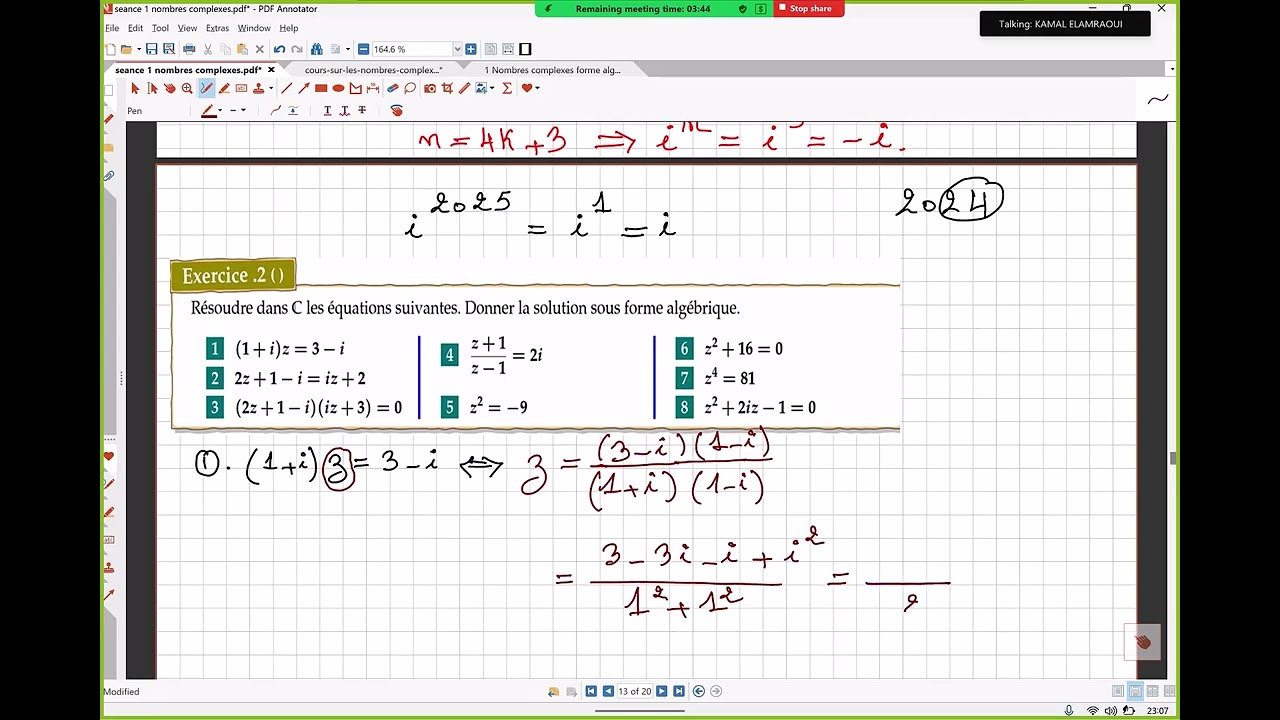 seance 1 nombres complexes.pdf* - PDF Annotator
Remaining meeting time: 03:44
Stop share
Talking: KAMAL ELAMRAOUI
File Edit Tool View Extras Window Help
164.6 %
seance 1 nombres complexes.pdf*
cours-sur-les-nombres-complex...*
1 Nombres complexes forme alg...
Pen
n = 4K + 3 ⟹ i^n = i^3 = -i.
i^2025 = i^1 = i
2024
Exercice .2 ()
Résoudre dans C les équations suivantes. Donner la solution sous forme algébrique.
1 (1+i)z = 3-i
2 2z+1-i = iz+2
3 (2z+1-i)(iz+3) = 0
4 (z+1)/(z-1) = 2i
5 z² = -9
6 z²+16 = 0
7 z⁴ = 81
8 z²+2iz-1 = 0
①. (1+i) z = 3-i ⟺ z = (3-i)(1-i) / (1+i)(1-i)
= (3-3i-i+i²) / (1²+1²) = / 2
Modified
13 of 20
23:07